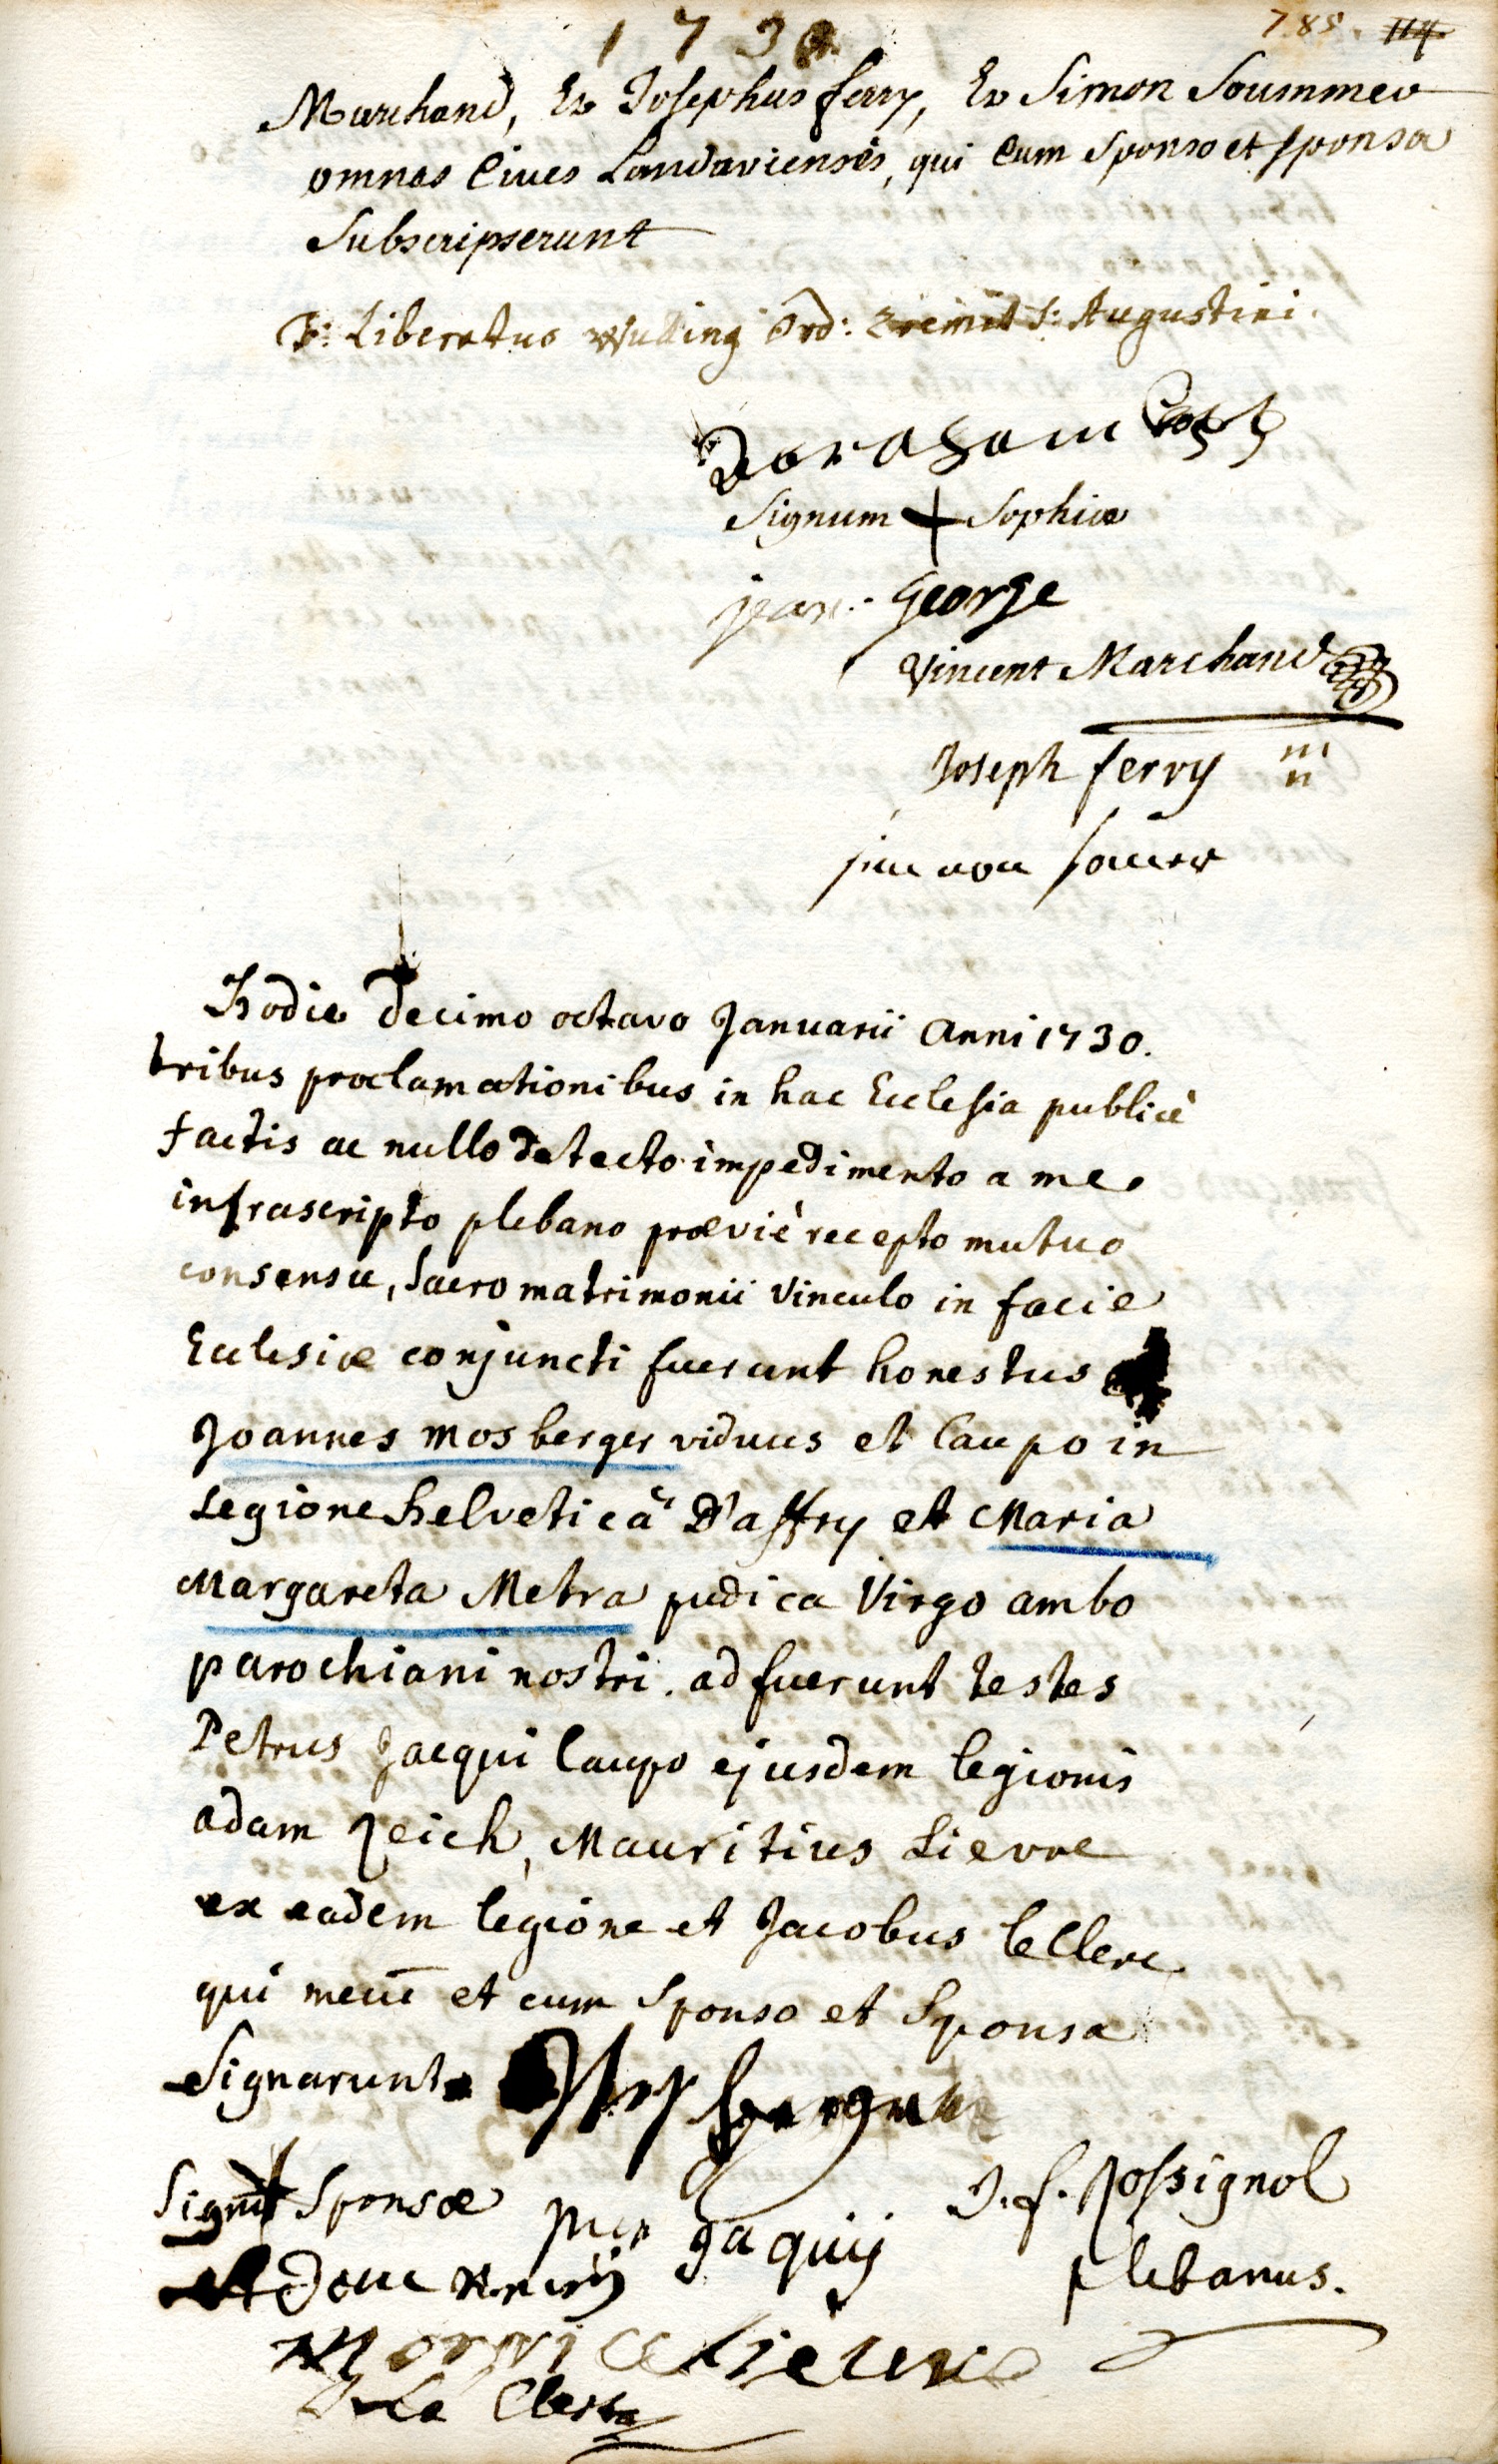 1730
785. 114
Marchand, Et Josephus ferry, Et Simon Soummer
omnes Cives Landavienses, qui Cum Sponso et sponsa
Subscripserunt
F: Liberatus Wulling Ord: Eremit S: Augustini.
Signum + Sophiæ
jean George
Vincent Marchand
Joseph ferry
Hodie decimo octavo Januarii Anni 1730.
tribus proclamationibus in hac Ecclesia publicè
factis ac nullo detecto impedimento a me
infrascripto plebano præviè recepto mutuo
consensu, Sacro matrimonii Vinculo in facie
Ecclesiæ conjuncti fuerunt honestus
Joannes Mosberger viduus et Caupo in
Legione helveticâ D'affry et Maria
Margareta Metra pudica Virgo ambo
parochiani nostri. adfuerunt testes
Petrus Jacqui Caupo ejusdem legionis
adam Reich, Mauritius Lievre
ex eadem legione et Jacobus leClerc
qui mecū et cum Sponso et Sponsa
Signarunt
Signū Sponsæ
J. f. Rossignol
gaquij
plebanus.